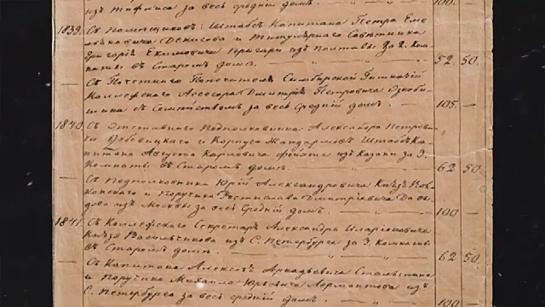 изъ Тифлиса за весь средній домъ. 100.
1839. Съ Помѣщиковъ: Штабсъ Капитана Петра Еме-
льяновича Денисова и Титулярнаго Совѣтника
Григорія Екимовича изъ Полтавы за 2. Ком-
наты въ Старомъ домѣ. 52 50.
Съ Почетнаго Попечителя Симбирской Гимназіи
Коллежскаго Ассесора Дмитрія Петровича Ознобі-
шина съ Семѣйствомъ за весь Средній домъ. 105 —
1840. Съ Отставнаго Подполковника Александра Петрови-
ча и Корпуса Жандармовъ Штабсъ Ка-
питана Августа Карловича изъ Казани за 3.
Комнаты въ Старомъ домѣ. 62 50.
Съ Подполковника Юрія Александровича Князя
и Поручика Ростислава Дмитріевича Да
дова изъ Москвы за весь Средній домъ 100 —
1841. Съ Коллежскаго Секретаря Александра Иларіоновича
Князя Васильчикова изъ С. Петербурга за 3. комнаты
въ Старомъ домѣ. 62 50
Съ Капитана Алексѣя Аркадьевича Столыпина
и Поручика Михайла Юрьевича Лермантова изъ
С. Петербурга за весь средній домъ. 100 —